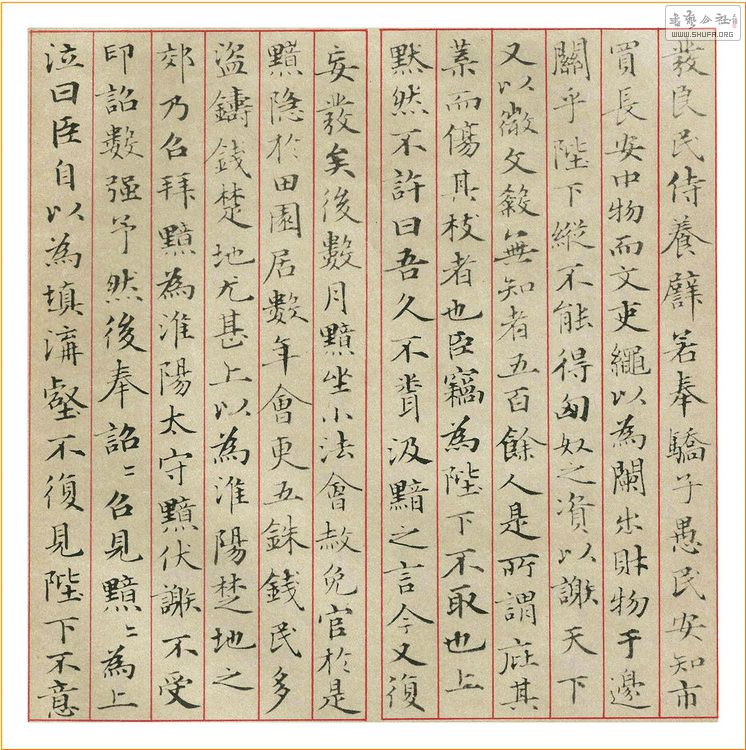 書藝公社
WWW.SHUFA.ORG
發良民侍養譬若奉驕子愚民安知市
買長安中物而文吏繩以為闌出財物于邊
關乎陛下縱不能得匈奴之資以謝天下
又以微文殺無知者五百餘人是所謂庇其
葉而傷其枝者也臣竊為陛下不取也上
默然不許曰吾久不聞汲黯之言今又復
妄發矣後數月黯坐小法會赦免官於是
黯隱於田園居數年會更五銖錢民多
盜鑄錢楚地尤甚上以為淮陽楚地之
郊乃召拜黯為淮陽太守黯伏謝不受
印詔數强予然後奉詔〻召見黯〻為上
泣曰臣自以為填溝壑不復見陛下不意